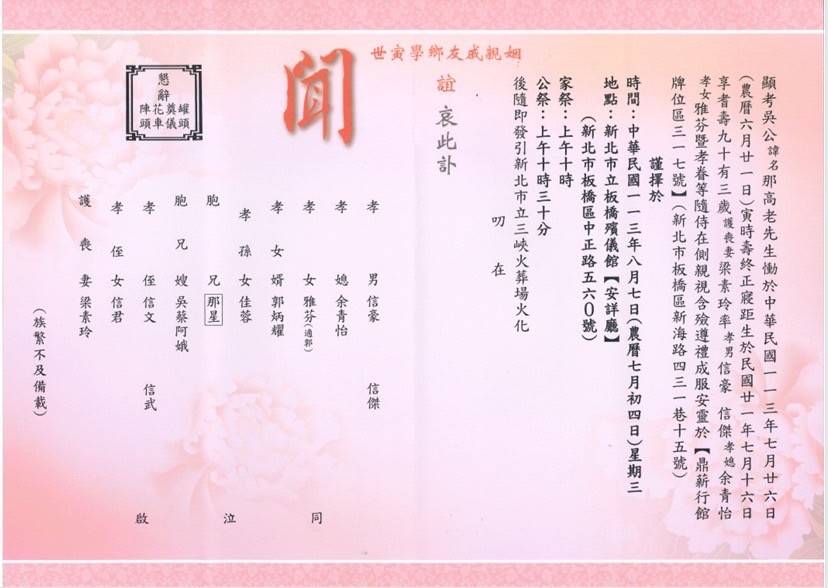 顯考吳公諱名那高老先生慟於中華民國一一三年七月廿六日
(農曆六月廿一日)寅時壽終正寢距生於民國廿一年七月十六日
享耆壽九十有三歲護喪妻梁素玲率孝男信豪 信傑孝媳余青怡
孝女雅芬暨孝眷等隨侍在側親視含殮遵禮成服安靈於【鼎薪行館
牌位區三一七號】(新北市板橋區新海路四三一巷十五號)
謹擇於
時間：中華民國一一三年八月七日(農曆七月初四日)星期三
地點：新北市立板橋殯儀館【安詳廳】
(新北市板橋區中正路五六0號)
家祭：上午十時
公祭：上午十時三十分
後隨即發引新北市立三峽火葬場火化
叨在
姻親戚友鄉學寅世
誼 哀此訃
聞
懇辭
罐頭
奠儀
花車
陣頭
孝男 信豪 信傑
孝媳 余青怡
孝女 雅芬(適郭)
孝女婿 郭炳耀
孝孫女 佳蓉
胞兄 那星
胞兄嫂 吳蔡阿娥
孝侄 信文 信武
孝侄女 信君
護喪妻 梁素玲
同 泣 啟
(族繁不及備載)